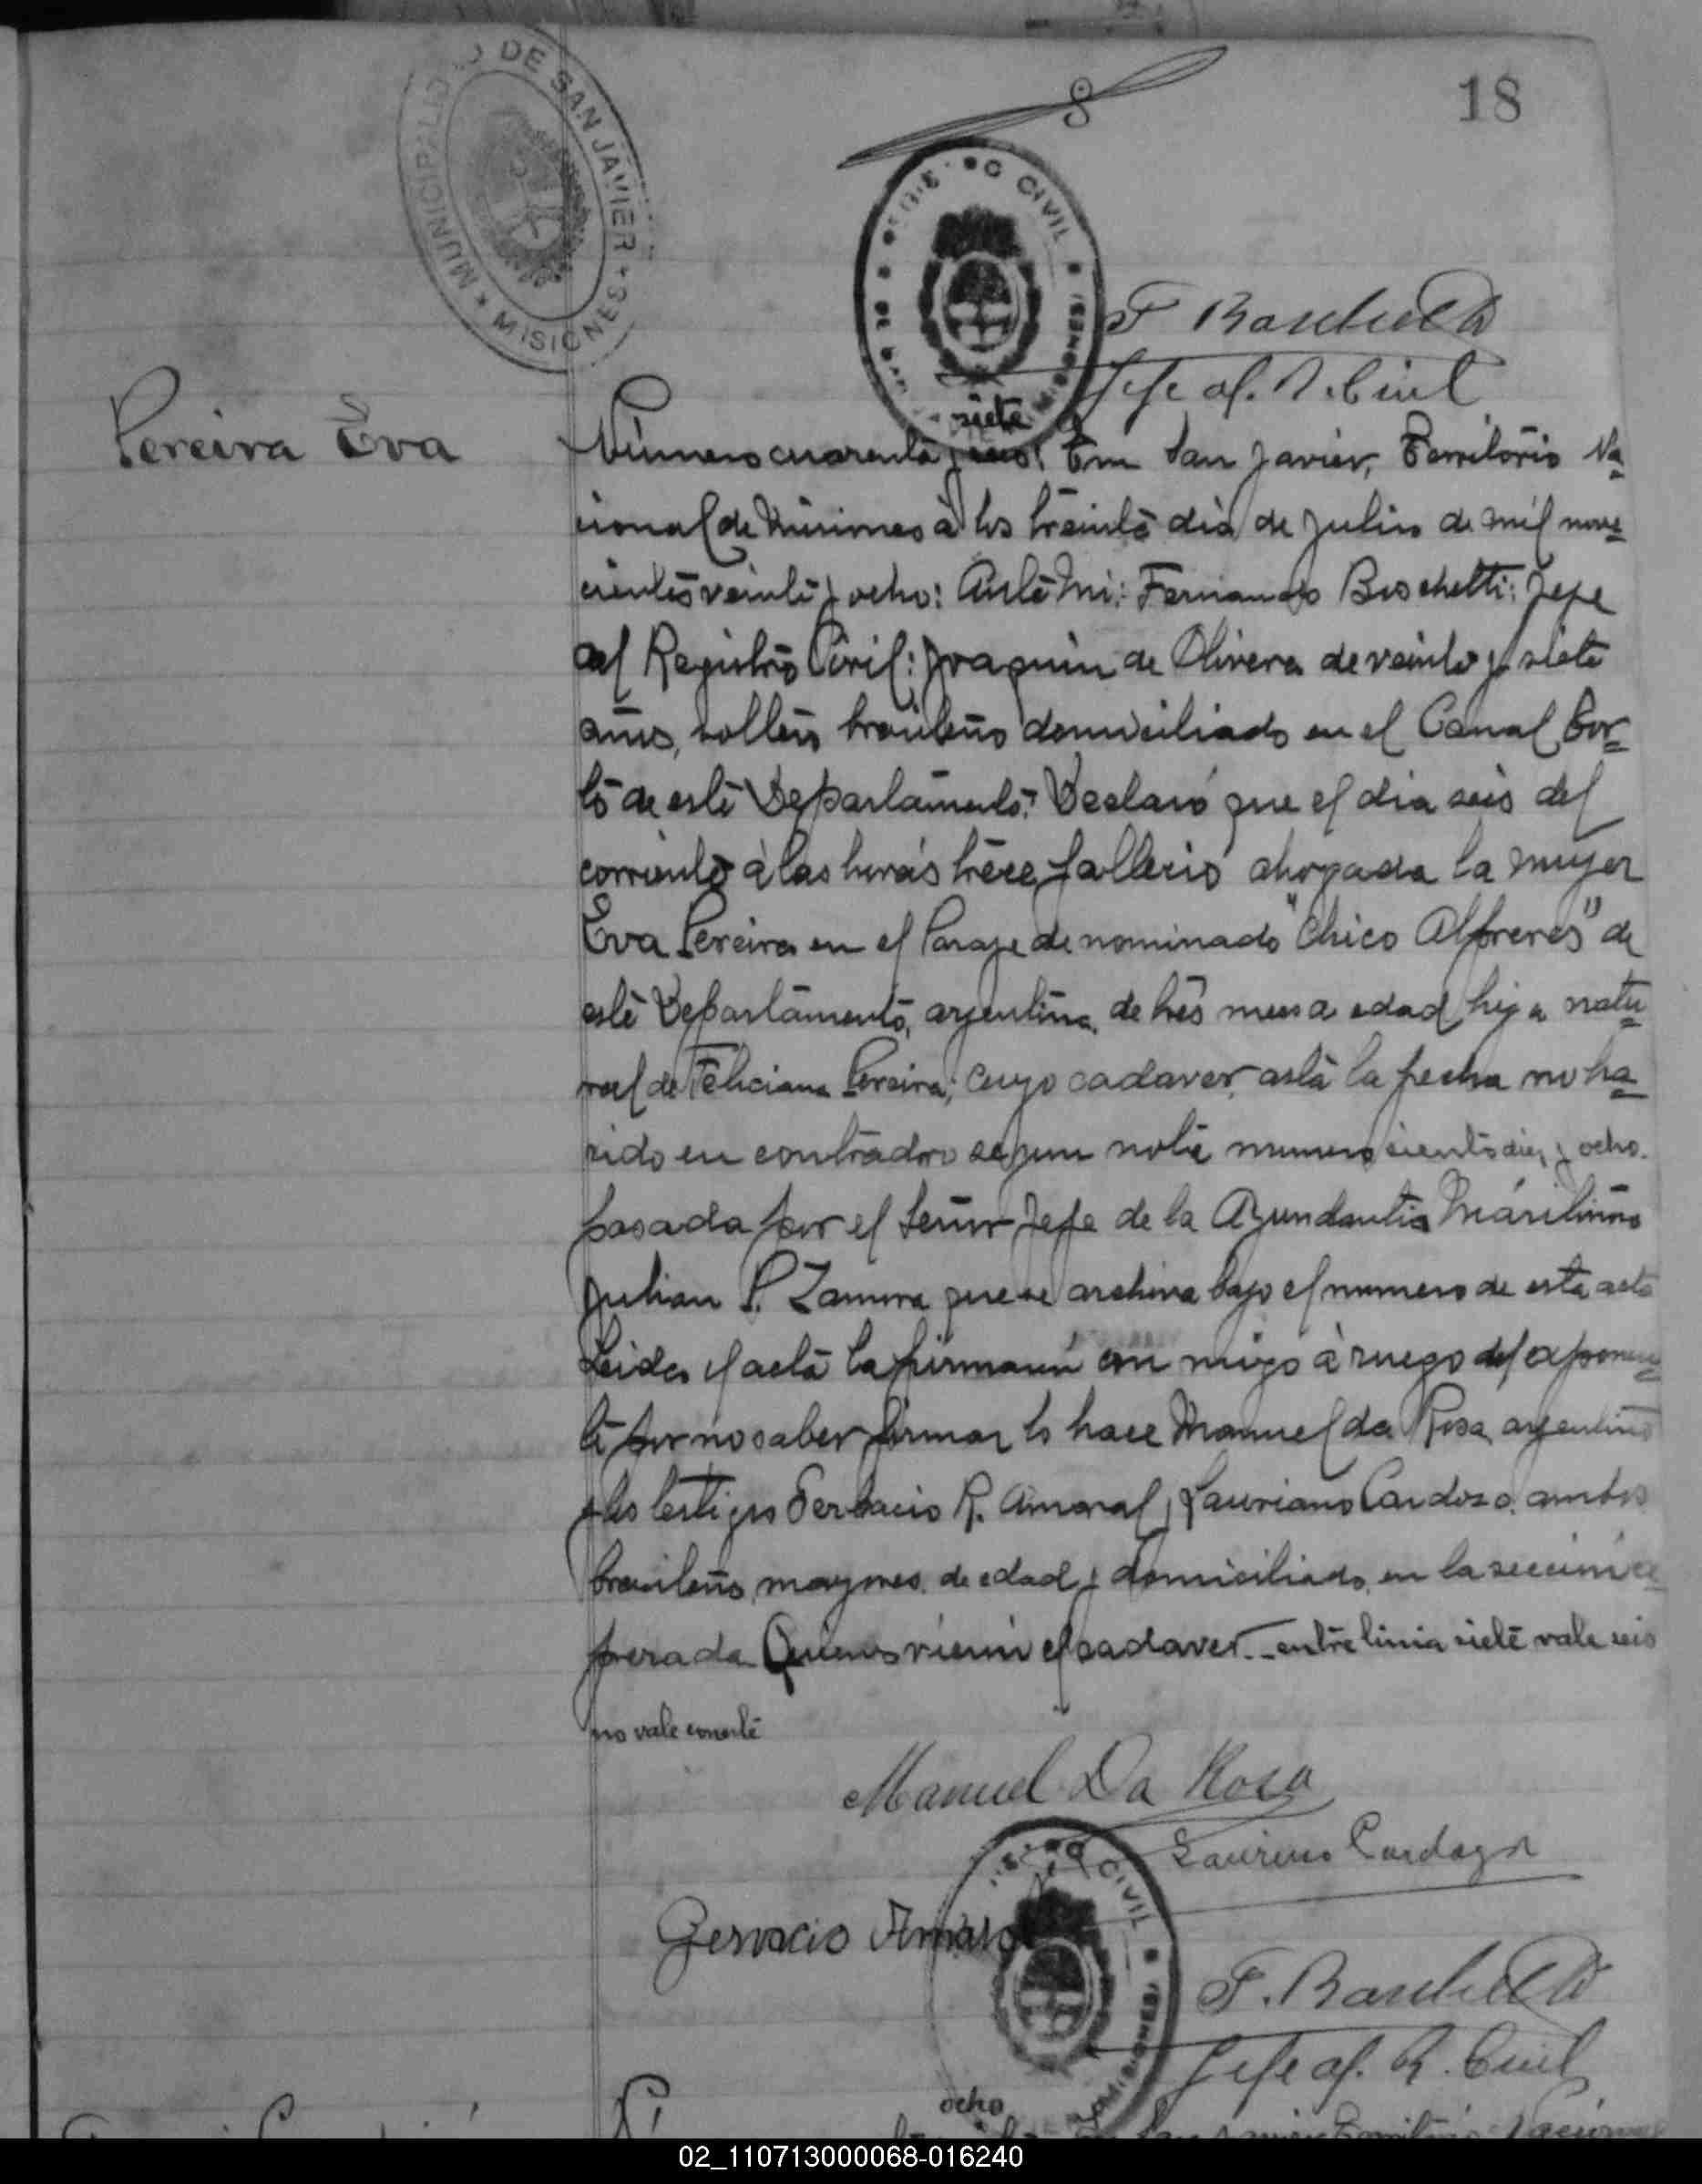 18
8
MUNICIPALID D DE SAN JAVIER
★ MISIONES ★
REGIS O CIVIL
F Boschetti
Jefe of. R. Civil
Pereira Eva
siete
Número cuarenta y seis: Em San Javier, Territorio Na=
cional de Misiones à los treinta dia de Julio de mil nove=
cientos veinte y ocho: Ante Mi: Fernando Boschetti: Jefe
del Registro Civil: Joaquin de Olivera de veinte y siete
años, soltero, brasileño domiciliado en el Canal Tor=
to de este Departamento: Declaró que el dia seis del
corriente à las horas trece falleció ahogada la mujer
Eva Pereira en el Paraje denominado "Chico Alferes" de
este Departamento, argentina, de tres meses edad hija natu=
ral de Feliciana Pereira; cuyo cadaver, asta la fecha no ha=
sido encontrado segun nota numero ciento diez y ocho.
pasada por el Señor Jefe de la Ayundantia Maritima
Julian P. Zamora que se archiva bajo el numero de esta acta
Leida el acta la firmaron con migo à ruego del exponen=
te por no saber firmar lo hace Manuel da Rosa, argentino
y los testigos Gerbacio R. Amaral y Lauriano Cardozo, ambos
brasileños, mayores de edad y domiciliado, en la sección ex=
presada Quienes vieron el cadaver.-- entre linia siete vale seis
no vale conste
Manuel Da Rosa
Laureno Cardozo
Gervacio Amaral
RO CIVIL
F. Boschetti
Jefe of. R. Civil
ocho
02_110713000068-016240